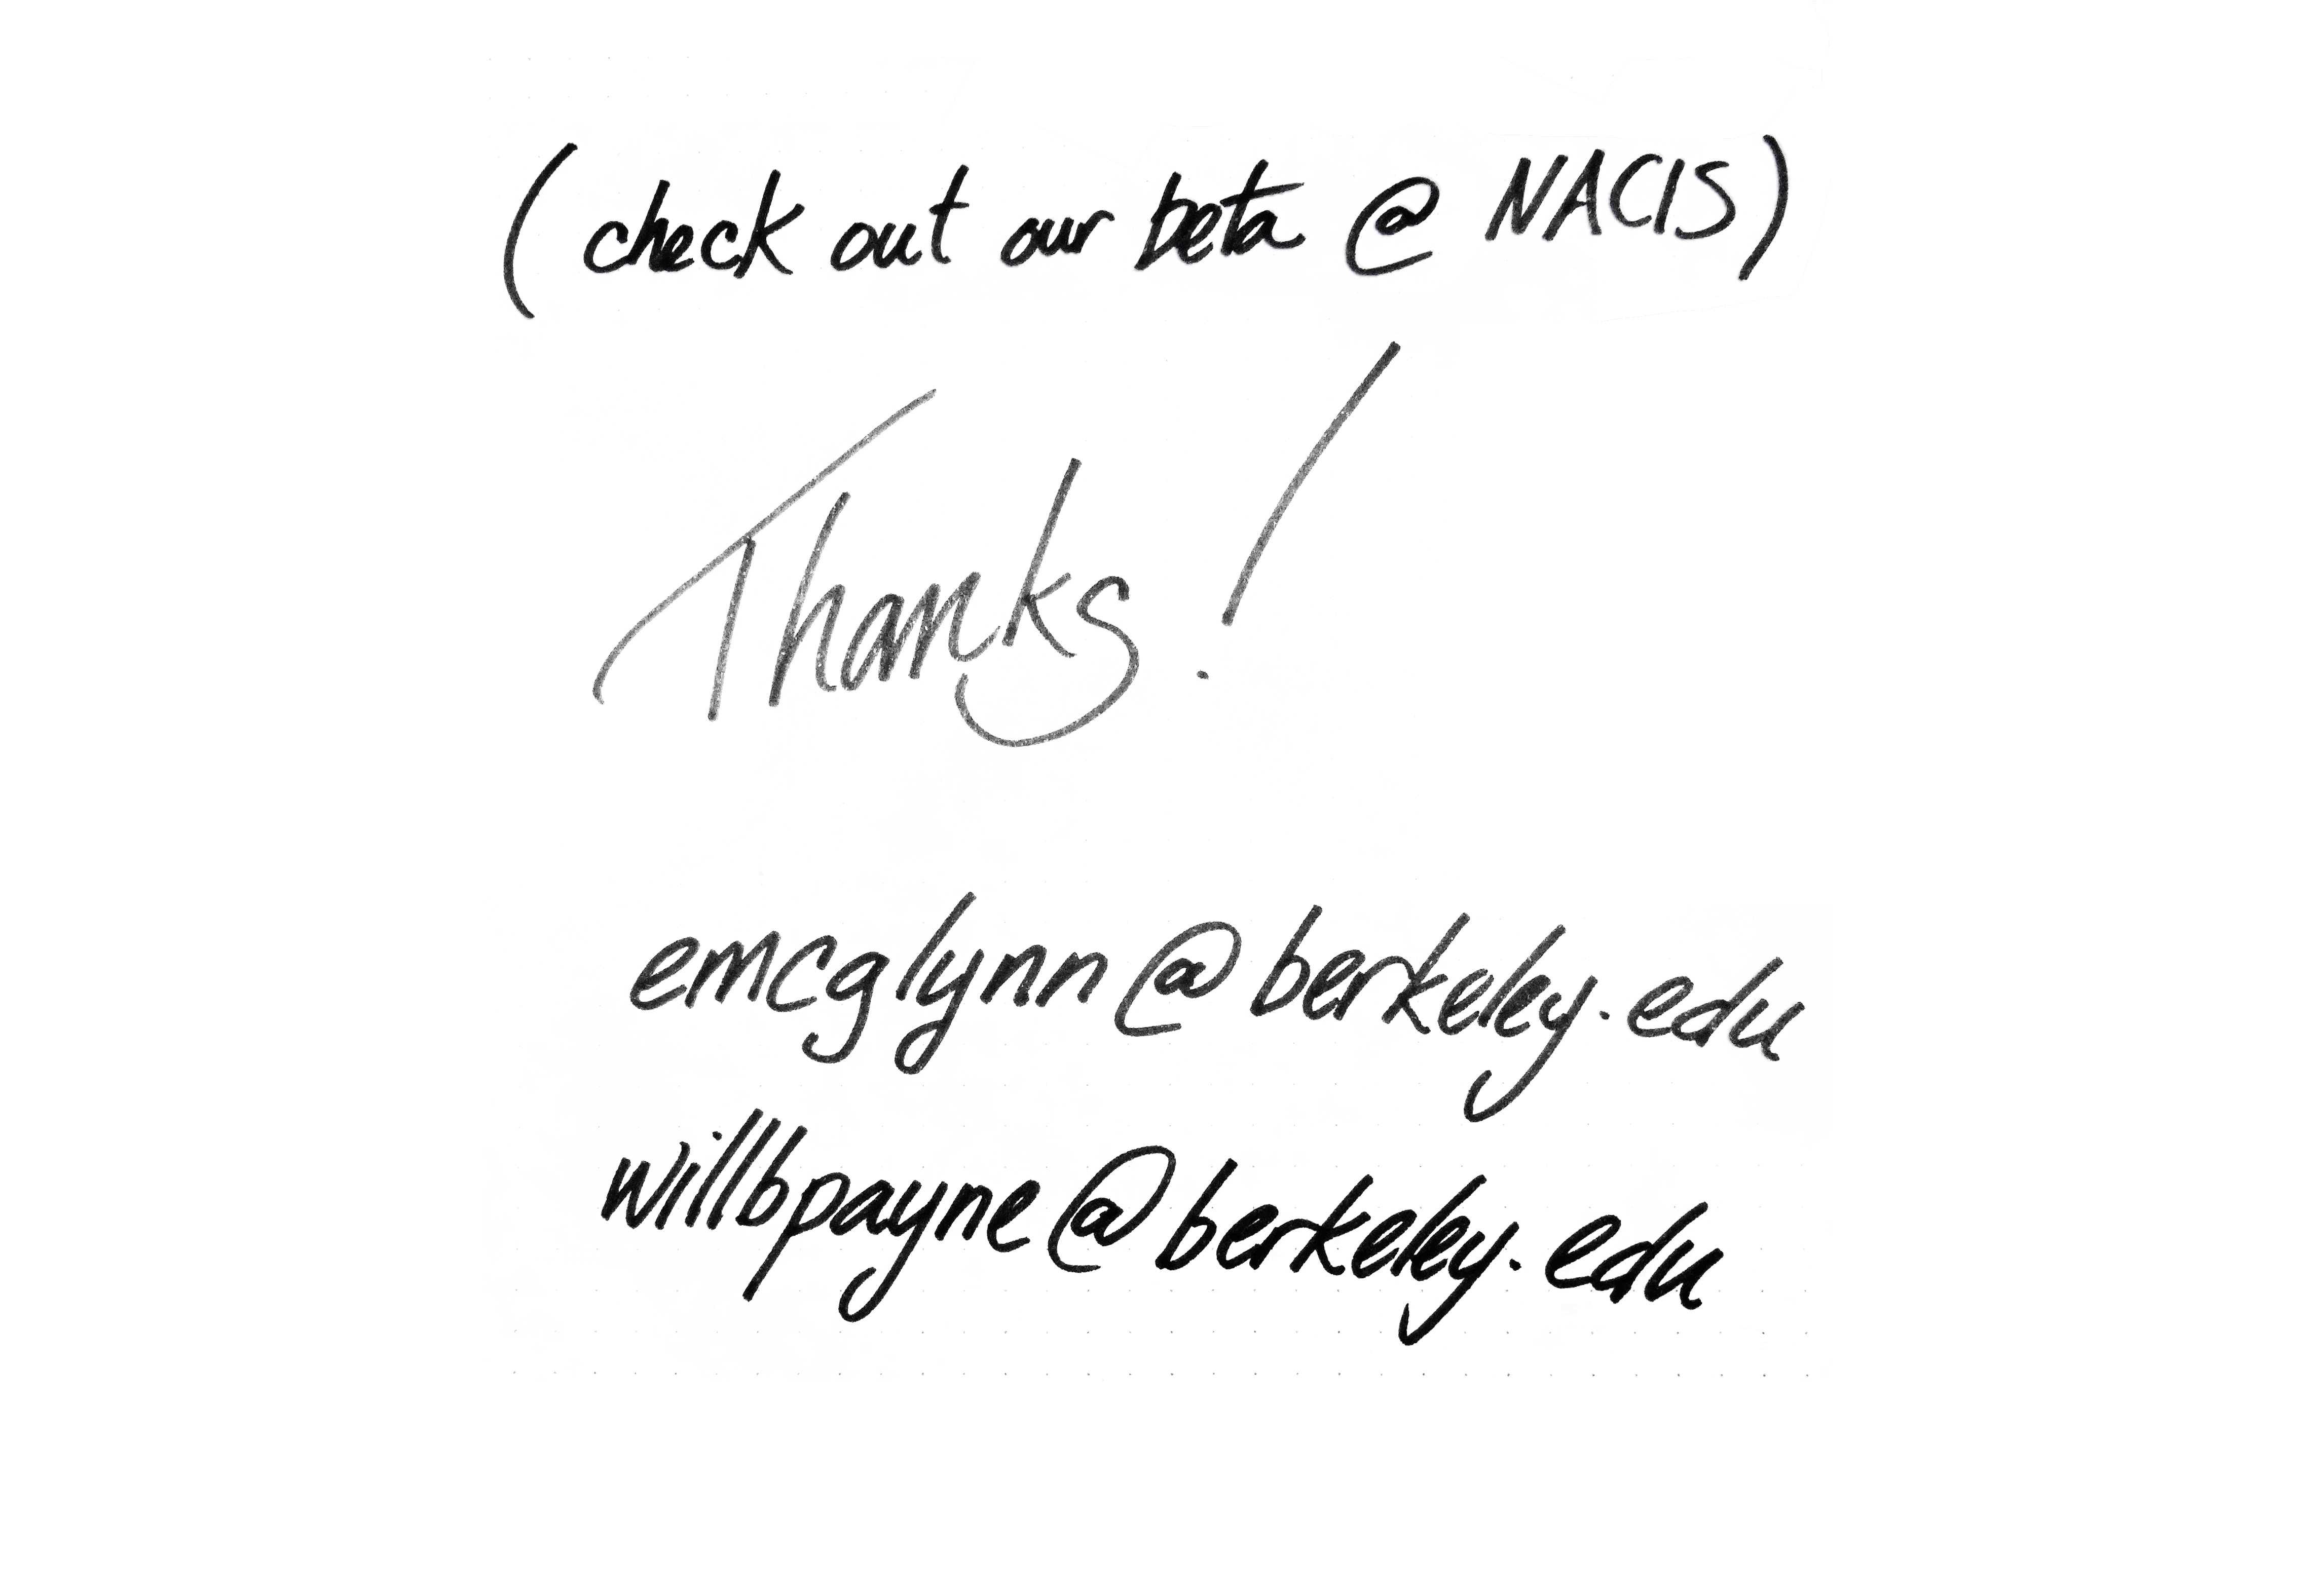 (check out our beta @ NACIS)
Thanks!
emcglynn@berkeley.edu
willbpayne@berkeley.edu